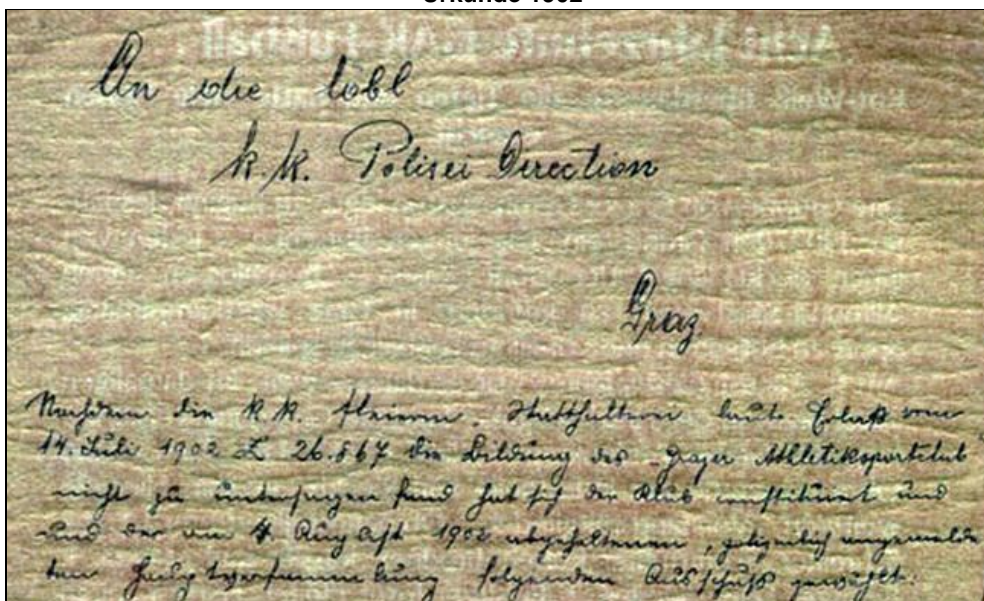 Urkunde 1902
An die löbl
k.k. Polizei Direction
Graz
Nachdem die k.k. steierm. Statthalterei laute Erlaß vom
14. Juli 1902 Z 26.567 die Bildung des Grazer Athletiksportclub
nicht zu untersagen fand hat sich der Klub constituirt und
und der am 4 August 1902 abgehaltenen, polizeilich angemelde
ten folgenden Ausschuß gewählt: